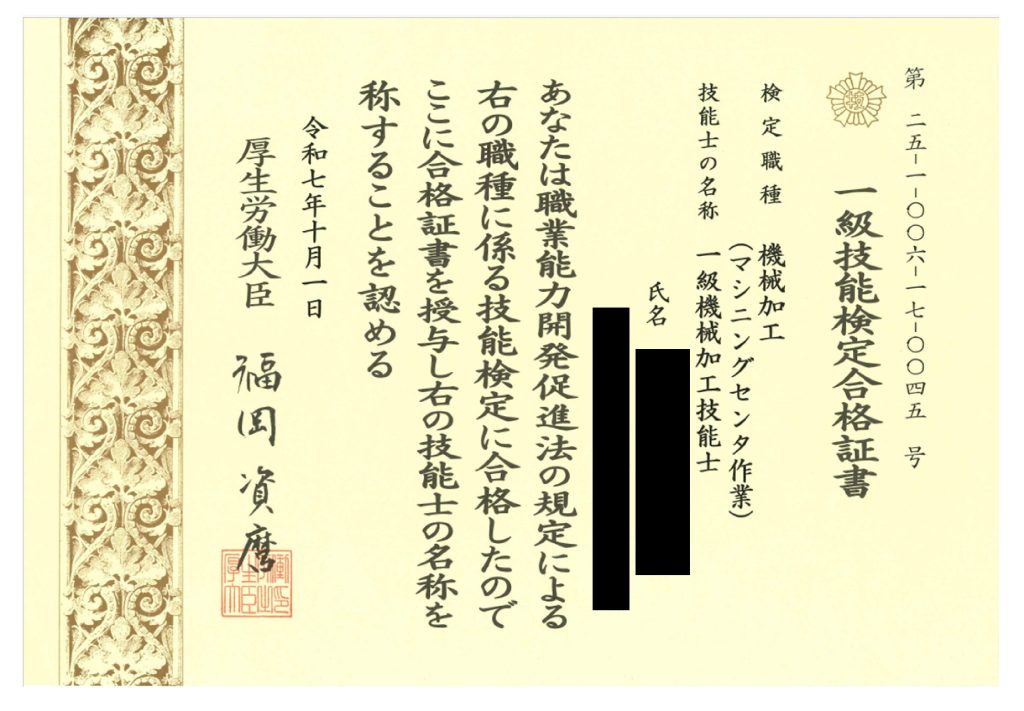 第 二五-一-〇〇六-一七-〇〇四五 号
一級技能検定合格証書
検定職種 機械加工
(マシニングセンタ作業)
技能士の名称 一級機械加工技能士
氏名
あなたは職業能力開発促進法の規定による
右の職種に係る技能検定に合格したので
ここに合格証書を授与し右の技能士の名称を
称することを認める
令和七年十月一日
厚生労働大臣 福岡資麿